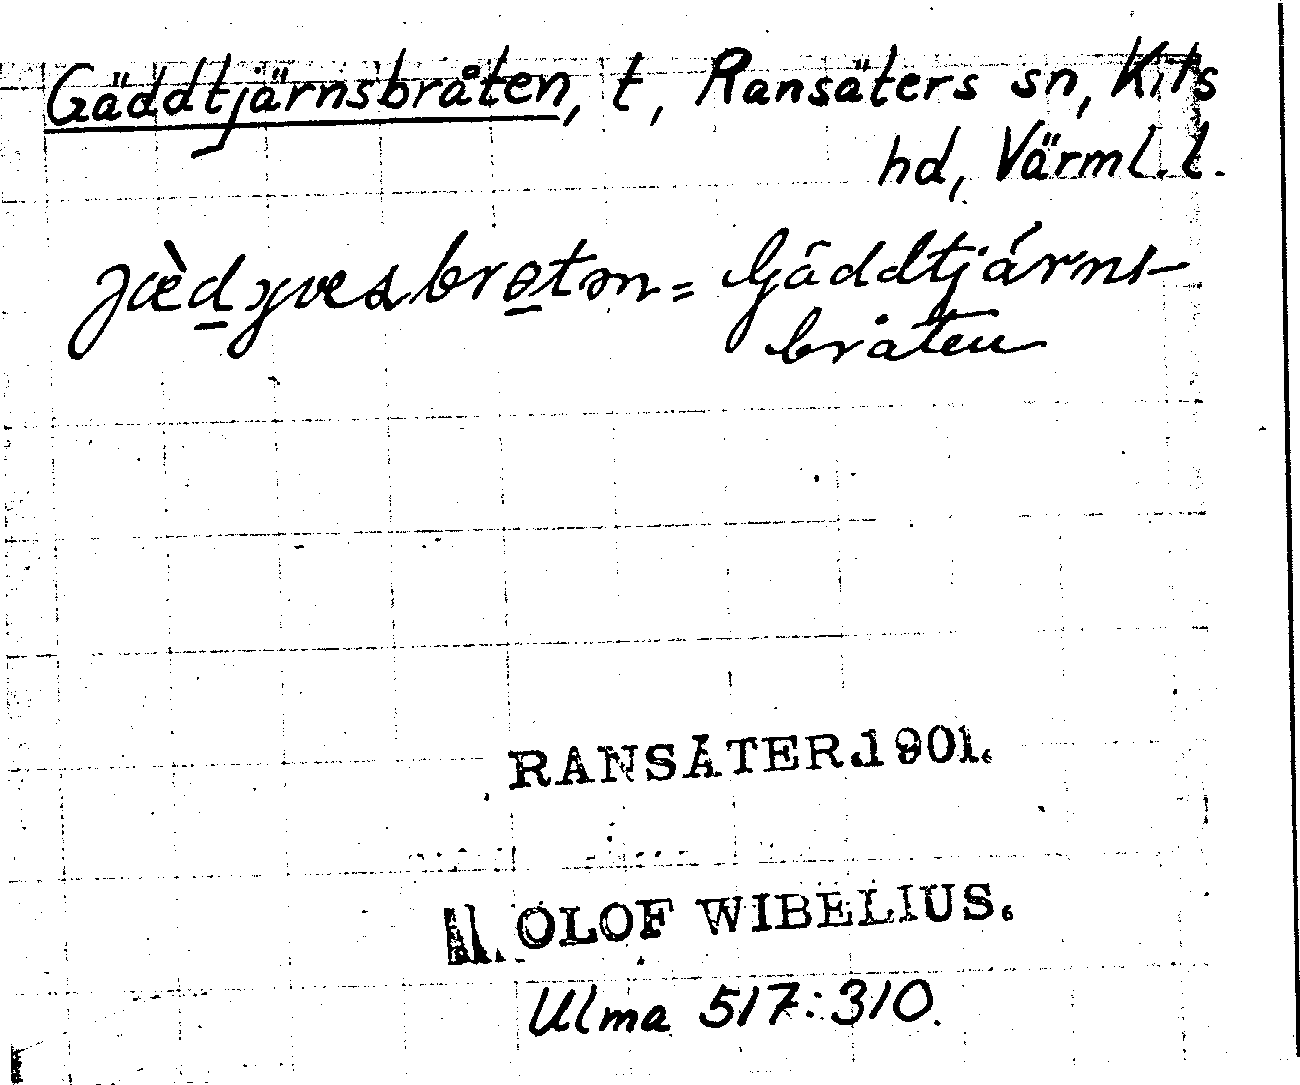 Gäddtjärnsbråten, t, Ransäters sn, Kils
hd, Värml. l.
= Gäddtjärns-
bråten
RANSÄTER.1901.
OLOF WIBELIUS.
Ulma 517:310.